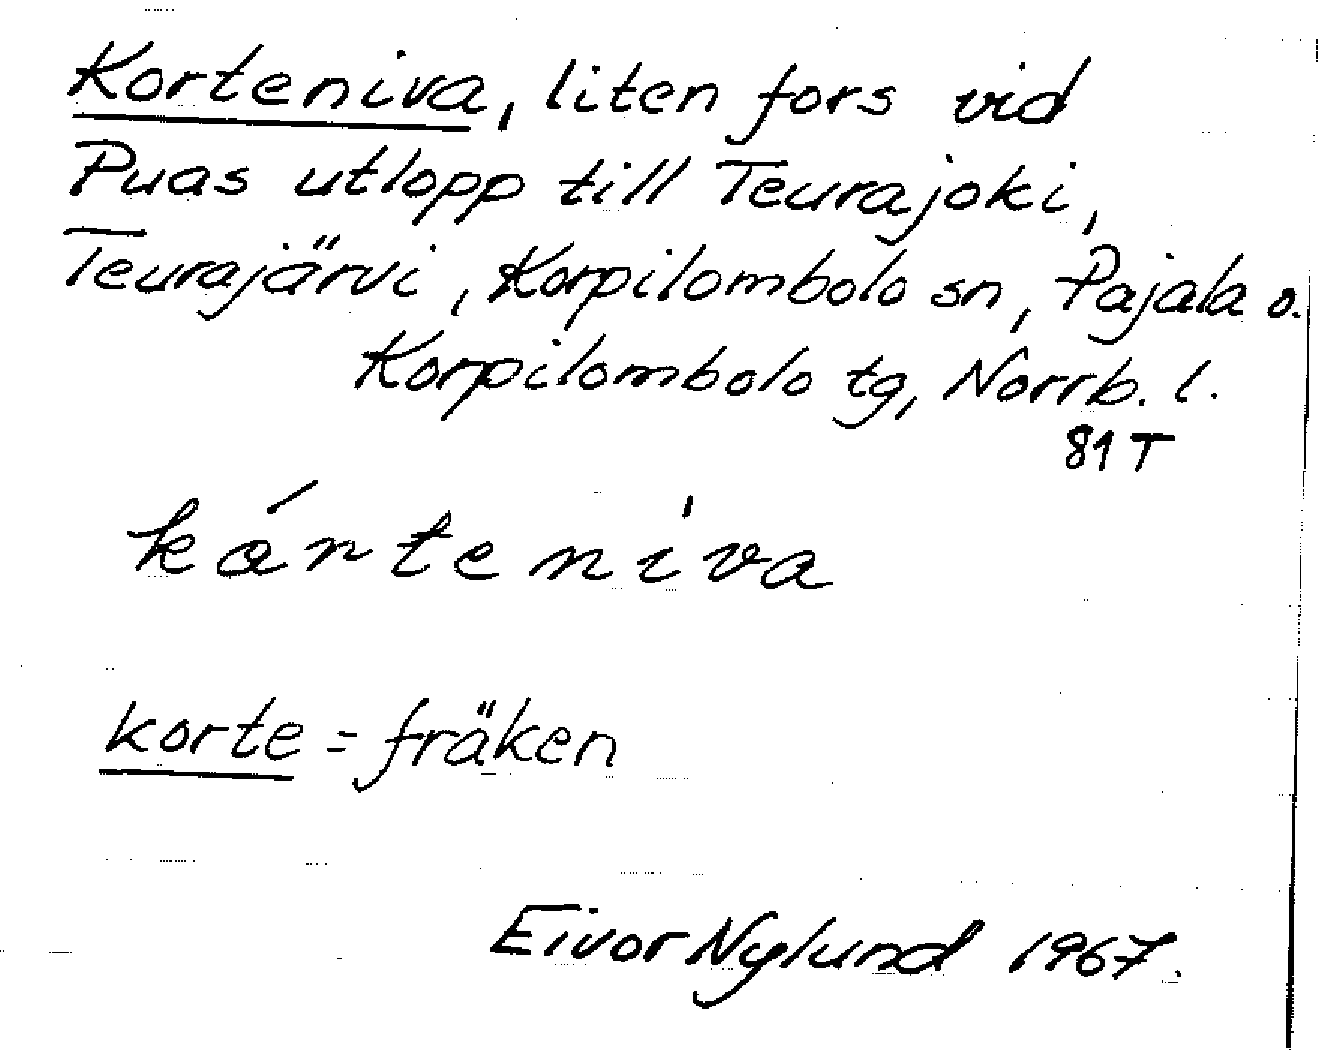 Korteniva, liten fors vid
Puas utlopp till Teurajoki,
Teurajärvi, Korpilombolo sn, Pajala o.
Korpilombolo tg, Norrb. l.
81 T
kórteniva
korte = fräken
Eivor Nylund 1967.